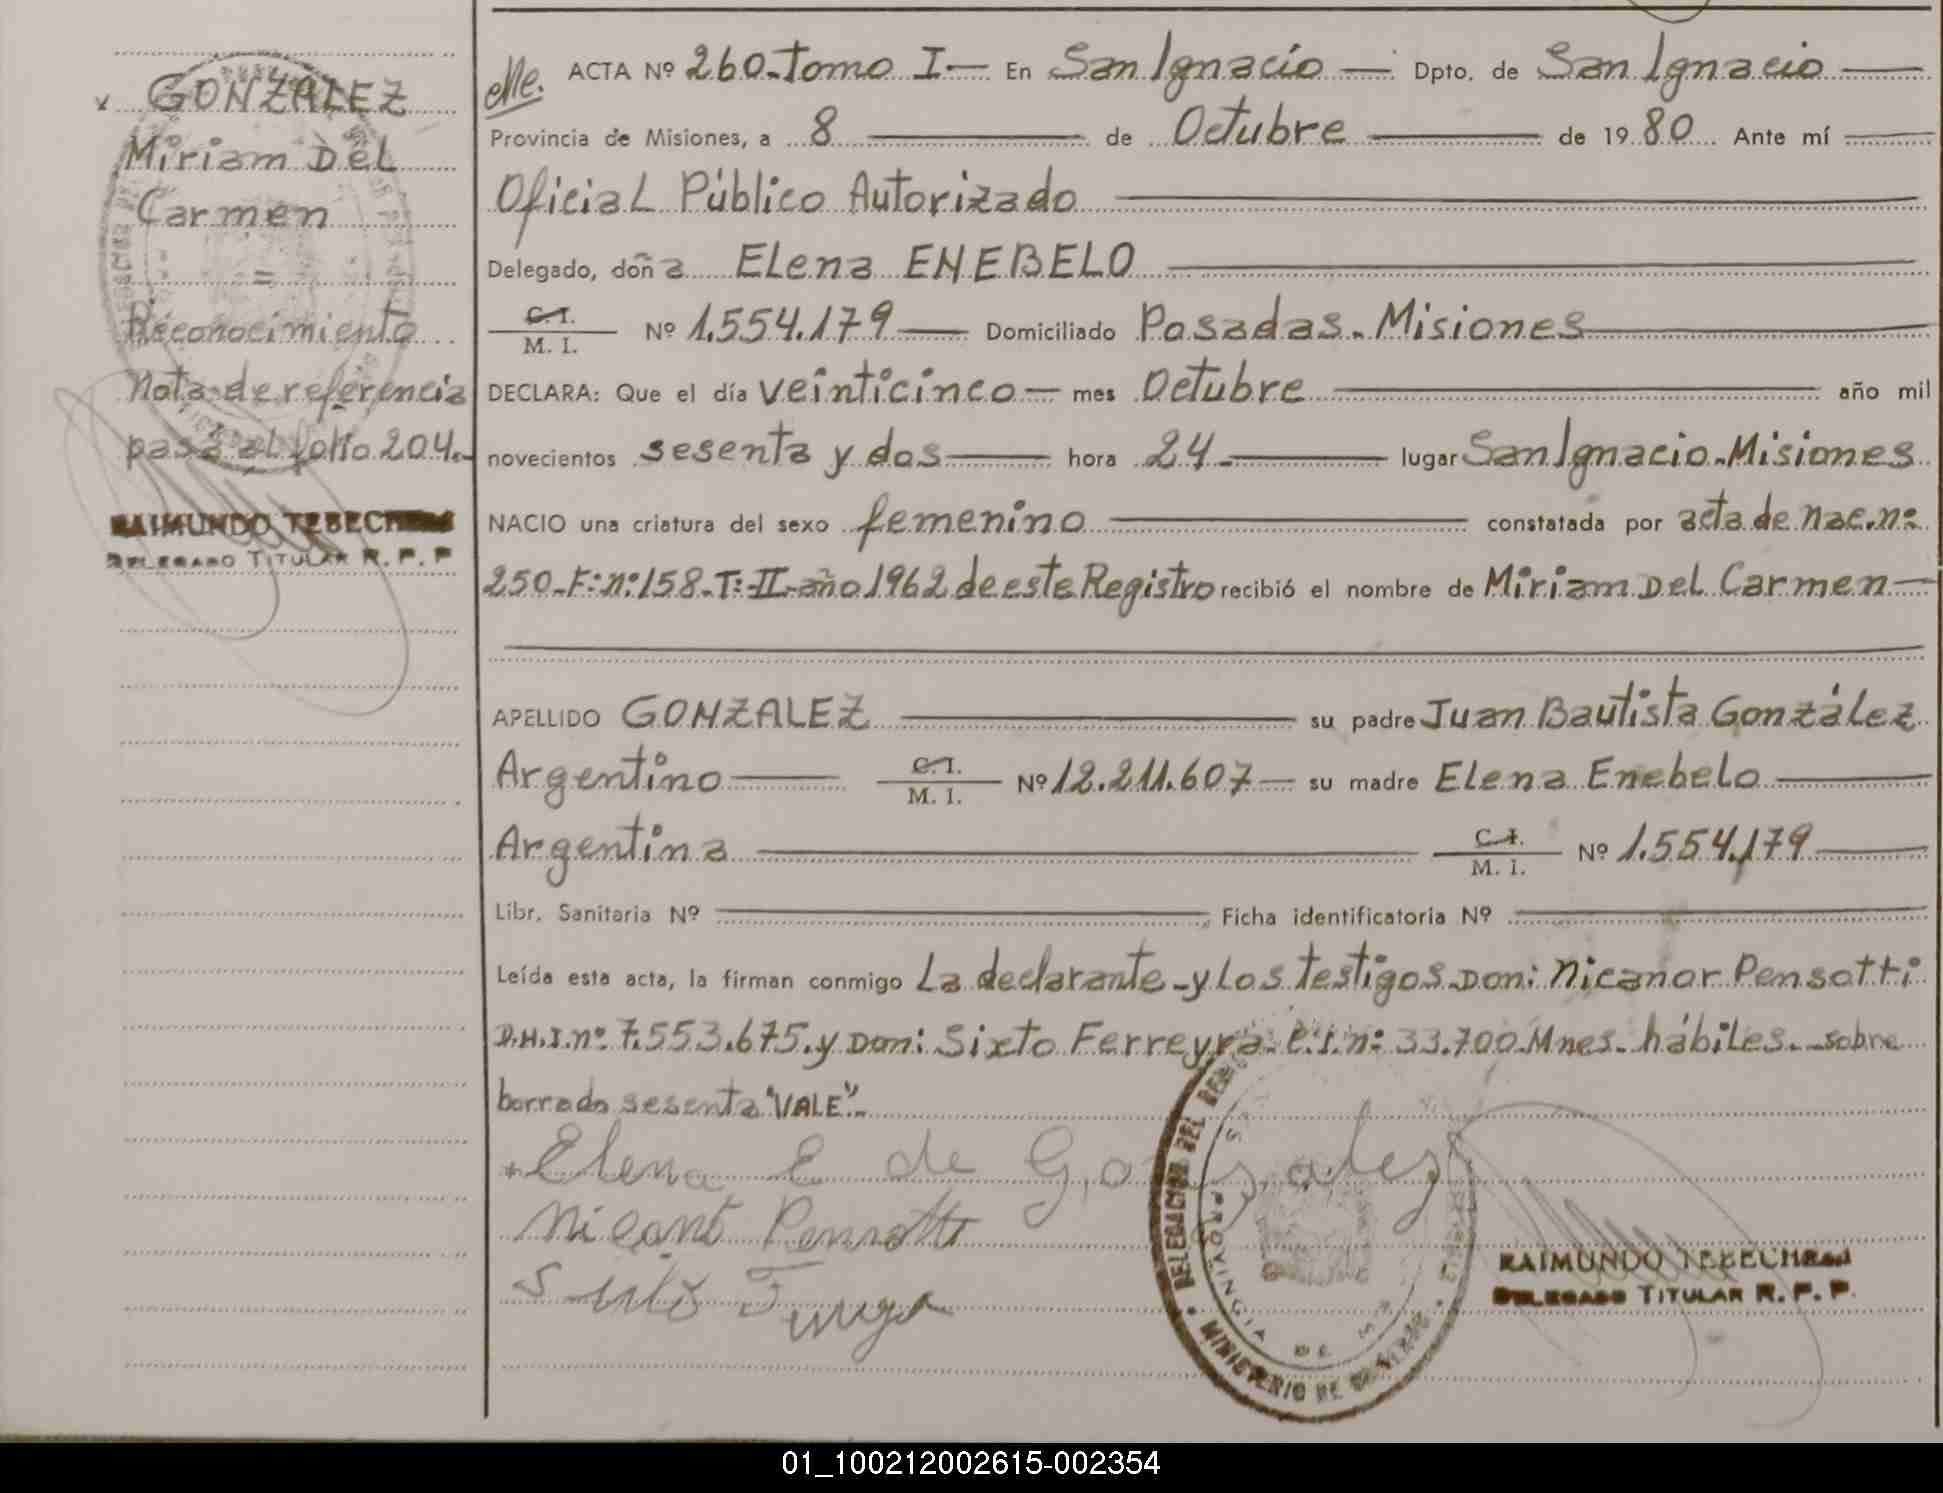 GONZALEZ
Miriam Del
Carmen
=
Reconocimiento
Nota de referencia
pasa al folio 204.-
RAIMUNDO TEBECHERI
DELEGADO TITULAR R. P. P
ACTA Nº 260-Tomo I — En San Ignacio — Dpto. de San Ignacio —
Provincia de Misiones, a 8 — de Octubre — de 1980 Ante mí
Oficial Público Autorizado
Delegado, doña Elena ENEBELO
C.I.
M. I. Nº 1.554.179 — Domiciliado Posadas - Misiones
DECLARA: Que el día veinticinco — mes Octubre — año mil
novecientos sesenta y dos — hora 24.- — lugar San Ignacio - Misiones
NACIO una criatura del sexo femenino — constatada por acta de nac. nº
250-F: nº 158-T: II - año 1962 de este Registro recibió el nombre de Miriam Del Carmen —
APELLIDO GONZALEZ — su padre Juan Bautista González
Argentino — C.I. M. I. Nº 12.211.607 — su madre Elena Enebelo —
Argentina — C.I. M. I. Nº 1.554.179 —
Libr. Sanitaria Nº — Ficha identificatoria Nº —
Leída esta acta, la firman conmigo La declarante - y los testigos Don: Nicanor Pensotti
D.N.I. nº 7.553.675 y Don: Sixto Ferreyra - C.I. nº 33.700 Mnes. hábiles. - sobre
borrado sesenta "VALE".-
Elena E de Gonzalez
Nicanor Pensotti
DELEGACION DEL
MINISTERIO DE GOBIERNO
PROVINCIA DE
RAIMUNDO TEBECHERI
DELEGADO TITULAR R. P. P.
01_100212002615-002354